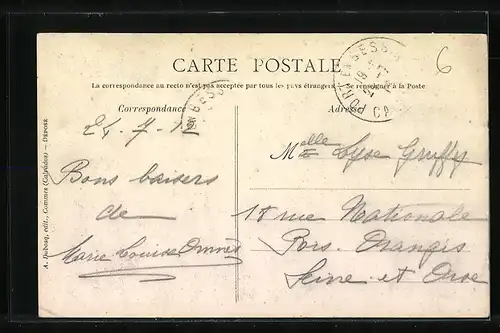 CARTE POSTALE
La correspondance au recto n'est pas acceptée par tous les pays étrangers. Se renseigner à la Poste
Correspondance
Adresse
PORT EN BESSIN
24-7-12
Bons baisers
de
Marie Louise
Melle Lyse Gruffy
18 rue Nationale
Ris-Orangis
Seine et Oise
A. Dubosq, édit., Commes (Calvados) — DÉPOSÉ
6